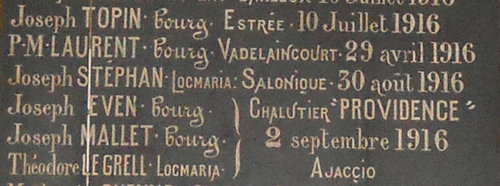 Joseph TOPIN · bourg. ESTRÉE · 10 Juillet 1916
P·M·LAURENT · bourg · VADELAINCOURT · 29 avril 1916
Joseph STÉPHAN · LOCMARIA: SALONIQUE · 30 août 1916
Joseph EVEN · bourg. CHALUTIER "PROVIDENCE"
Joseph MALLET · bourg. 2 septembre 1916
Théodore LE GRELL · LOCMARIA AJACCIO